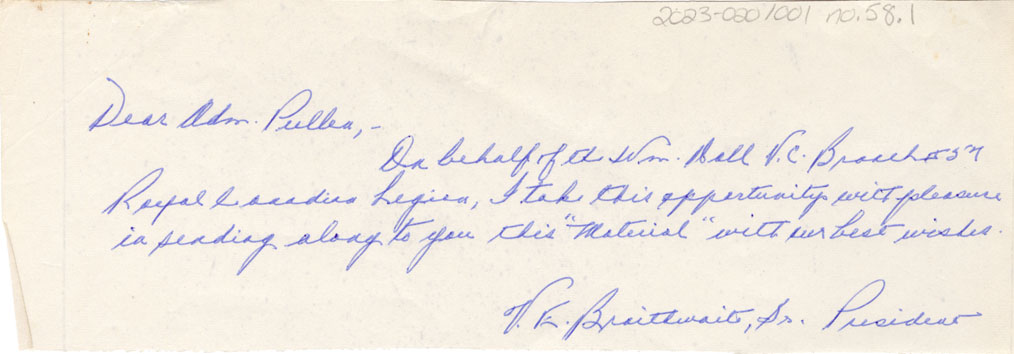 2023-020/001 no. 58.1
Dear Adm. Pullen,-
On behalf of the Wm. Hall V.C. Branch #57
Royal Canadian Legion, I take this opportunity with pleasure
in sending along to you this "Material" with our best wishes.
V. E. Braithwaite, Sr. President